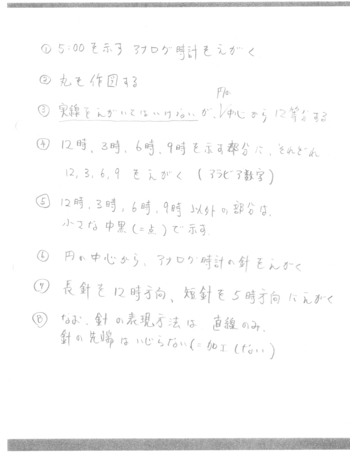 ① 5:00を示すアナログ時計をえがく
② 丸を作図する
円の
③ 実線をえがいてはいけないが、中心から12等分する
④ 12時、3時、6時、9時を示す部分に、それぞれ
12, 3, 6, 9 をえがく (アラビア数字)
⑤ 12時、3時、6時、9時以外の部分は、
小さな中黒(=点)で示す.
⑥ 円の中心から、アナログ時計の針をえがく
⑦ 長針を12時方向、短針を5時方向にえがく
⑧ なお、針の表現方法は 直線のみ.
針の先端はいじらない(=加工しない)